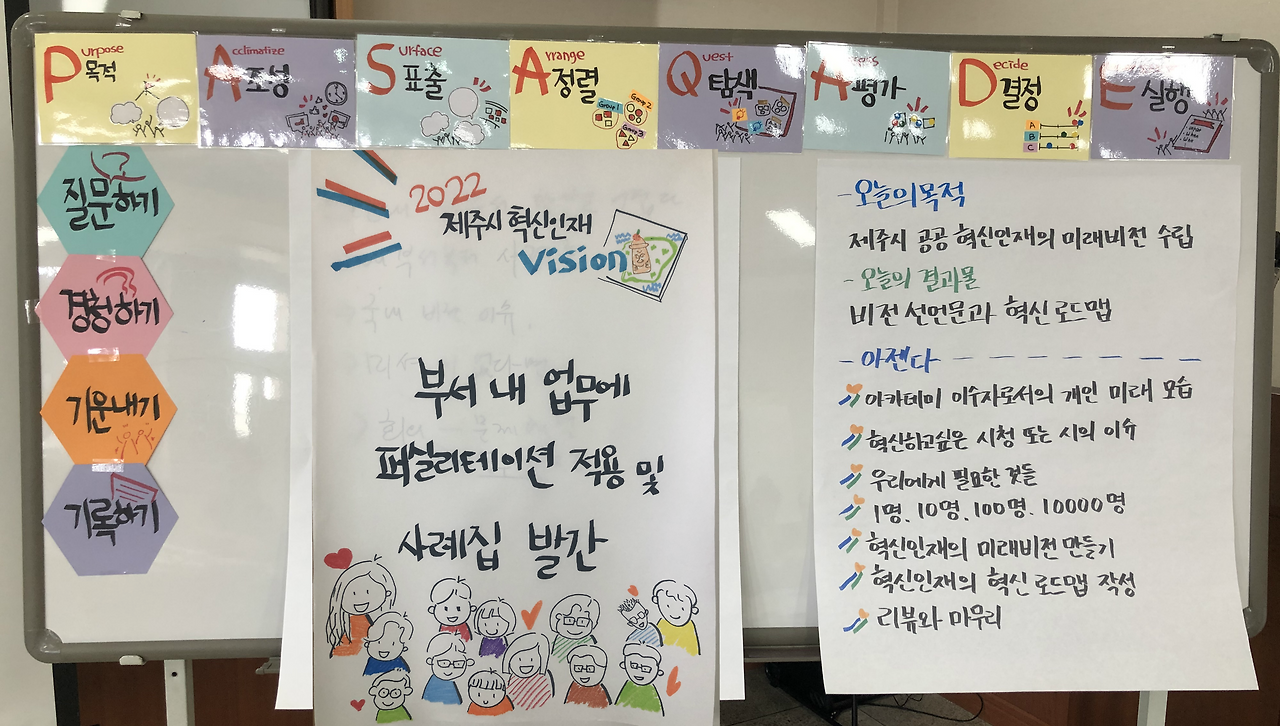 Purpose 목적
Acclimatize 조성
Surface 표출
Arrange 정렬
Group 1
Group 2
Group 3
Quest 탐색
평가
Decide 결정
A
B
C
E 실행
질문하기
경청하기
기운내기
기록하기
2022
제주시 혁신인재
Vision
부서 내 업무에
퍼실리테이션 적용 및
사례집 발간
- 오늘의 목적
제주시 공공 혁신인재의 미래비전 수립
- 오늘의 결과물
비전 선언문과 혁신 로드맵
- 아젠다 - - - - - - -
아카데미 이수자로서의 개인 미래 모습
혁신하고싶은 시청 또는 시의 이슈
우리에게 필요한 것들
1명. 10명. 100명. 10000명
혁신인재의 미래비전 만들기
혁신인재의 혁신 로드맵 작성
리뷰와 마무리